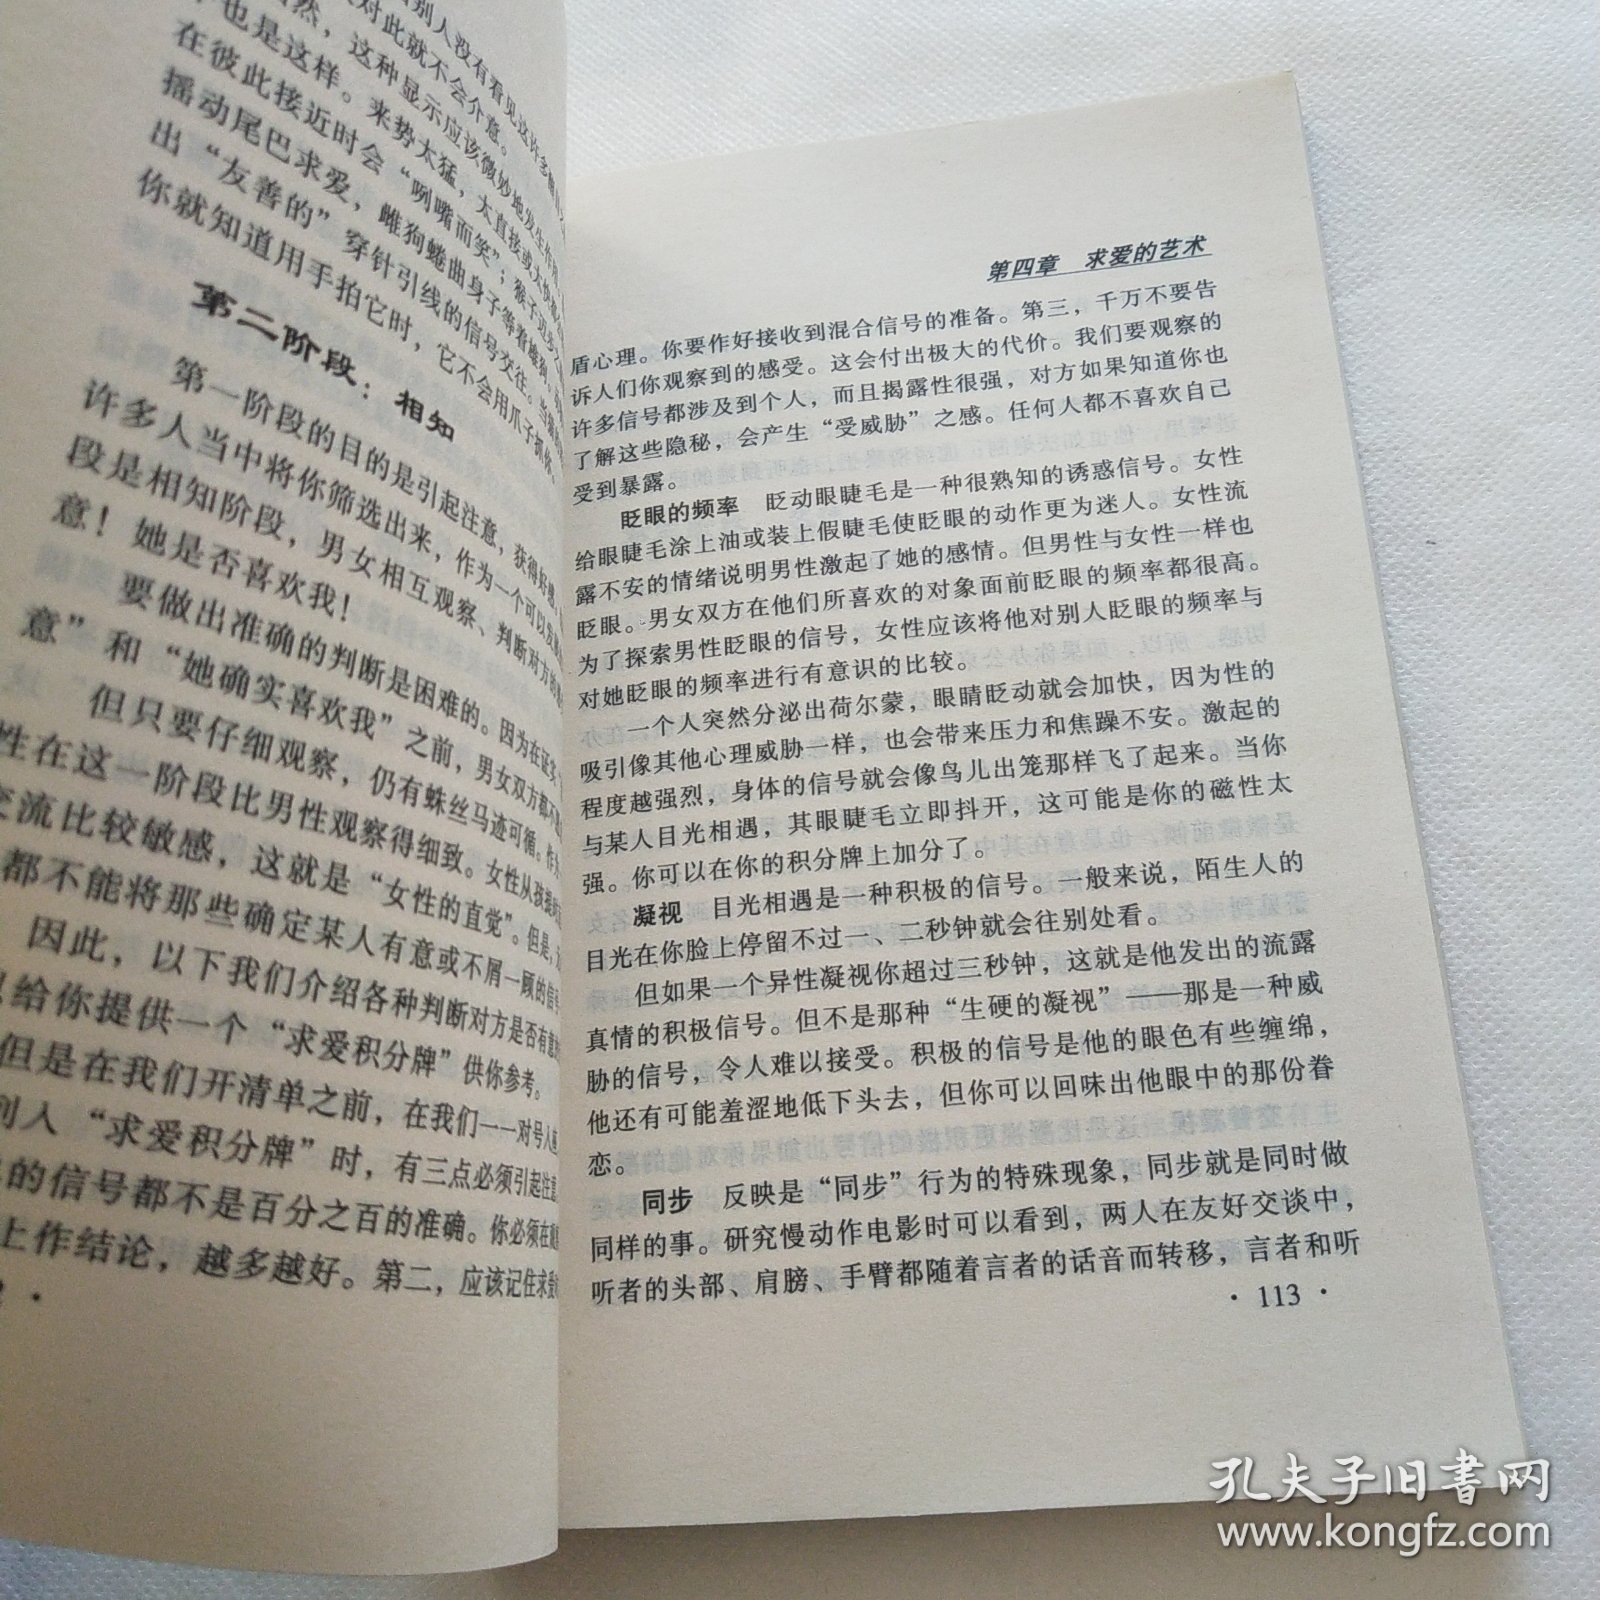 别人没有看见这许多
对此就不会介意。
然，这种显示应该微妙地发生作用
也是这样。来势太猛，太直接或太快都
在彼此接近时会“咧嘴而笑”；猴子
摇动尾巴求爱，雌狗蜷曲身子等着雄狗。
出“友善的”穿针引线的信号交往。当猫
你就知道用手拍它时，它不会用爪子抓你。
第二阶段：相知
第一阶段的目的是引起注意，获得好感，
许多人当中将你筛选出来，作为一个可以发展
段是相知阶段，男女相互观察、判断对方的
意！她是否喜欢我！
要做出准确的判断是困难的。因为在证实
意”和“她确实喜欢我”之前，男女双方都不
但只要仔细观察，仍有蛛丝马迹可循。作为
性在这一阶段比男性观察得细致。女性从孩提时
交流比较敏感，这就是“女性的直觉”。但是，
都不能将那些确定某人有意或不屑一顾的信号
因此，以下我们介绍各种判断对方是否有意的
给你提供一个“求爱积分牌”供你参考。
但是在我们开清单之前，在我们一一对号入座
别人“求爱积分牌”时，有三点必须引起注意
的信号都不是百分之百的准确。你必须在
上作结论，越多越好。第二，应该记住求爱
第四章 求爱的艺术
盾心理。你要作好接收到混合信号的准备。第三，千万不要告
诉人们你观察到的感受。这会付出极大的代价。我们要观察的
许多信号都涉及到个人，而且揭露性很强，对方如果知道你也
了解这些隐秘，会产生“受威胁”之感。任何人都不喜欢自己
受到暴露。
眨眼的频率 眨动眼睫毛是一种很熟知的诱惑信号。女性
给眼睫毛涂上油或装上假睫毛使眨眼的动作更为迷人。女性流
露不安的情绪说明男性激起了她的感情。但男性与女性一样也
眨眼。男女双方在他们所喜欢的对象面前眨眼的频率都很高。
为了探索男性眨眼的信号，女性应该将他对别人眨眼的频率与
对她眨眼的频率进行有意识的比较。
一个人突然分泌出荷尔蒙，眼睛眨动就会加快，因为性的
吸引像其他心理威胁一样，也会带来压力和焦躁不安。激起的
程度越强烈，身体的信号就会像鸟儿出笼那样飞了起来。当你
与某人目光相遇，其眼睫毛立即抖开，这可能是你的磁性太
强。你可以在你的积分牌上加分了。
凝视 目光相遇是一种积极的信号。一般来说，陌生人的
目光在你脸上停留不过一、二秒钟就会往别处看。
但如果一个异性凝视你超过三秒钟，这就是他发出的流露
真情的积极信号。但不是那种“生硬的凝视”——那是一种威
胁的信号，令人难以接受。积极的信号是他的眼色有些缠绵，
他还有可能羞涩地低下头去，但你可以回味出他眼中的那份眷
恋。
同步 反映是“同步”行为的特殊现象，同步就是同时做
同样的事。研究慢动作电影时可以看到，两人在友好交谈中，
听者的头部、肩膀、手臂都随着言者的话音而转移，言者和听
· 113 ·
孔夫子旧书网
www.kongfz.com